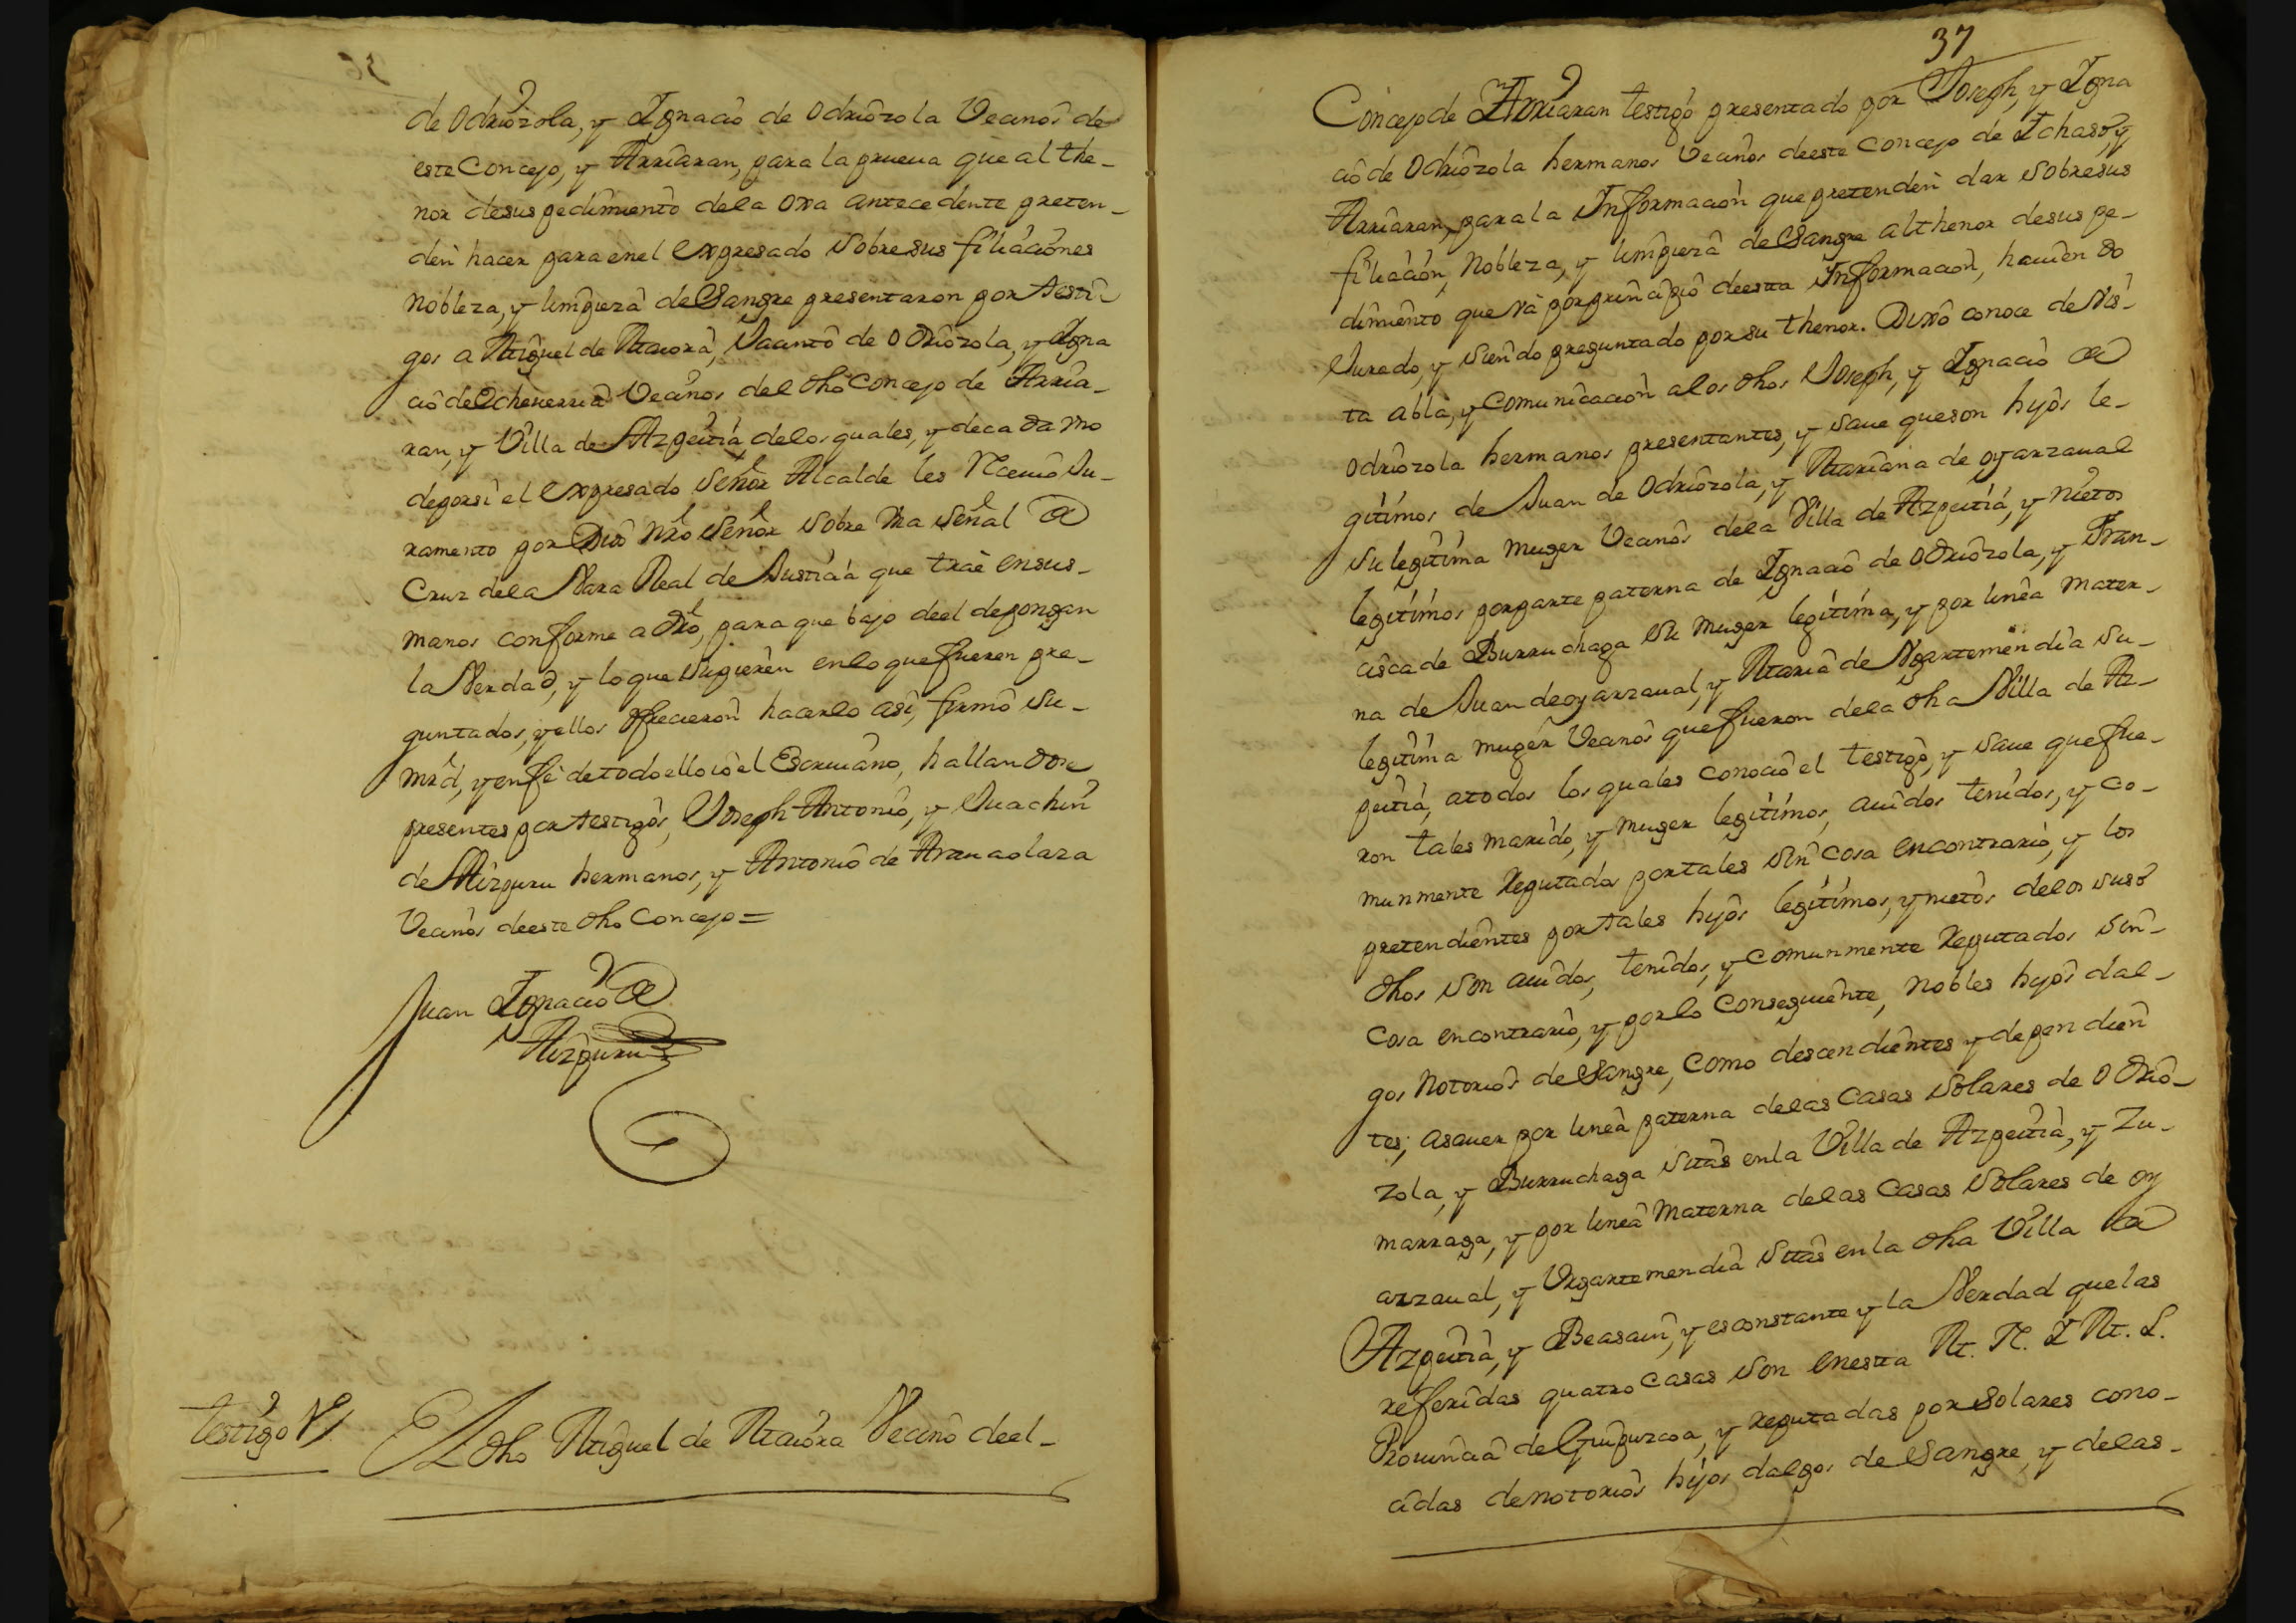 de Odriozola, y Ygnacio de Odriozola Vecinos de
este Concejo, y Arriaran, para la prueua que al the-
nor de sus pedimiento de la oxa antecedente preten-
den hacer para en el expresado sobre sus filiaciones
nobleza, y limpieza de Sangre presentaron por testi-
gos a Miguel de Maiora, Jacinto de Odriozola, y Ygna
cio de Echeuerria Vecinos del dho Concejo de Arria-
ran, y Villa de Azpeitia, de los quales, y de cada vno
de por si el expresado Señor Alcalde les Receuio Ju-
ramento por Dios nro Señor sobre vna señal de
Cruz de la Vara Real de Justicia que trae en sus-
manos conforme a dro, para que bajo de el depongan
la Verdad, y lo que supieren en lo que fueren pre-
guntados, y ellos ofrecieron hacerlo asi, firmò su-
mrd, y en fè de todo ello io el Escriuano, hallandose
presentes por testigos, Joseph Antonio, y Juachin
de Aizpuru hermanos, y Antonio de Aramaolaza
Vecinos de este dho Concejo =
Juan Ygnacio de
Aizpuru
testigo 1º
El dho Miguel de Maiora Vecino de el-
37
Concejo de Arriaran testigo presentado por Joseph, y Ygna
cio de Odriozola hermanos Vecinos de este Concejo de Ychaso, y
Arriaran, para la Informacion que pretenden dar sobre sus
filiacion, Nobleza, y limpieza de Sangre al thenor de su pe-
dimiento que và por principio de esta Informacion, hauiendo
Jurado, y siendo preguntado por su thenor. Dixo conoce de vis-
ta abla, y comunicacion a los dhos Joseph, y Ygnacio de
Odriozola hermanos presentantes, y saue que son hijos le-
gitimos de Juan de Odriozola, y Mariana de oyarzaual
su legitima muger Vecinos de la Villa de Azpeitia, y nietos
legitimos por parte paterna de Ygnacio de Odriozola, y Fran-
cisca de Burruchaga su muger legitima, y por linea mater-
na de Juan de oyarzaual, y Maria de Vgartemendia su-
legitima muger Vecinos que fueron de la dha Villa de Az-
peitia, a todos los quales conocio el testigo, y saue que fue-
ron tales marido, y muger legitimos, auidos tenidos, y co-
munmente Reputados por tales sin cosa en contrario, y los
pretendientes por tales hijos legitimos, y nietos de los suso
dhos son auidos, tenidos, y comunmente Reputados sin-
cosa en contrario, y por lo consequente, nobles hijos dal-
gos notorios de Sangre, como descendientes y dependien
tes; asauer por linea paterna de las Casas Solares de Odrio-
zola, y Burruchaga sitas en la Villa de Azpeitia, y Zu-
marraga, y por linea materna de las Casas Solares de oy
arzaual, y Vrgartemendia sitas en la dha Villa de
Azpeitia, y Beasain, y es constante y la Verdad que las
referidas quatro casas son en esta M. N. Y M. L.
Prouincia de Guipuzcoa, y reputadas por Solares cono-
cidas de notorios hijos dalgos de Sangre, y de las-